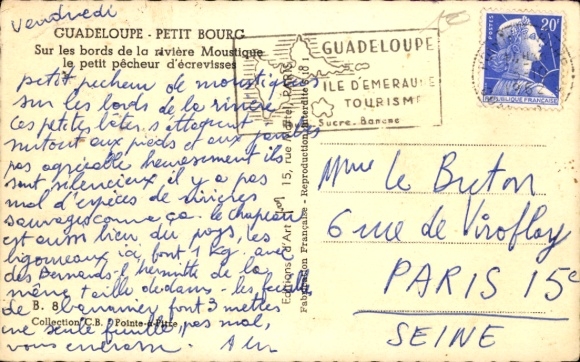 Vendredi
GUADELOUPE - PETIT BOURG
Sur les bords de la rivière Moustique
le petit pêcheur d'écrevisses
petit pêcheur de moustiques
sur les bords de la rivière
ces petites bêtes s'attaquent
surtout aux pieds et aux jambes
pas agréable heureusement ils
sont silencieux il y a pas
mal d'espèces de rivières
sauvages comme ça. le chapeau
est aussi bien du pays, les
bigorneaux ici, font 1 kg avec
des Bernards-l'hermitte de la
même taille dedans - les feuilles
de bananier font 3 mètres
une seule feuille, pas mal,
vous
B. 8
Collection C.B. Pointe-à-Pitre
Editions d'Art 15, rue Martel, PARIS
Fabrication Française - Reproduction Interdite
GUADELOUPE
ILE D'EMERAUDE
TOURISME
Sucre. Banane
POSTES
20F
REPUBLIQUE FRANÇAISE
Mme Le Breton
6 rue de Viroflay
PARIS 15e
SEINE